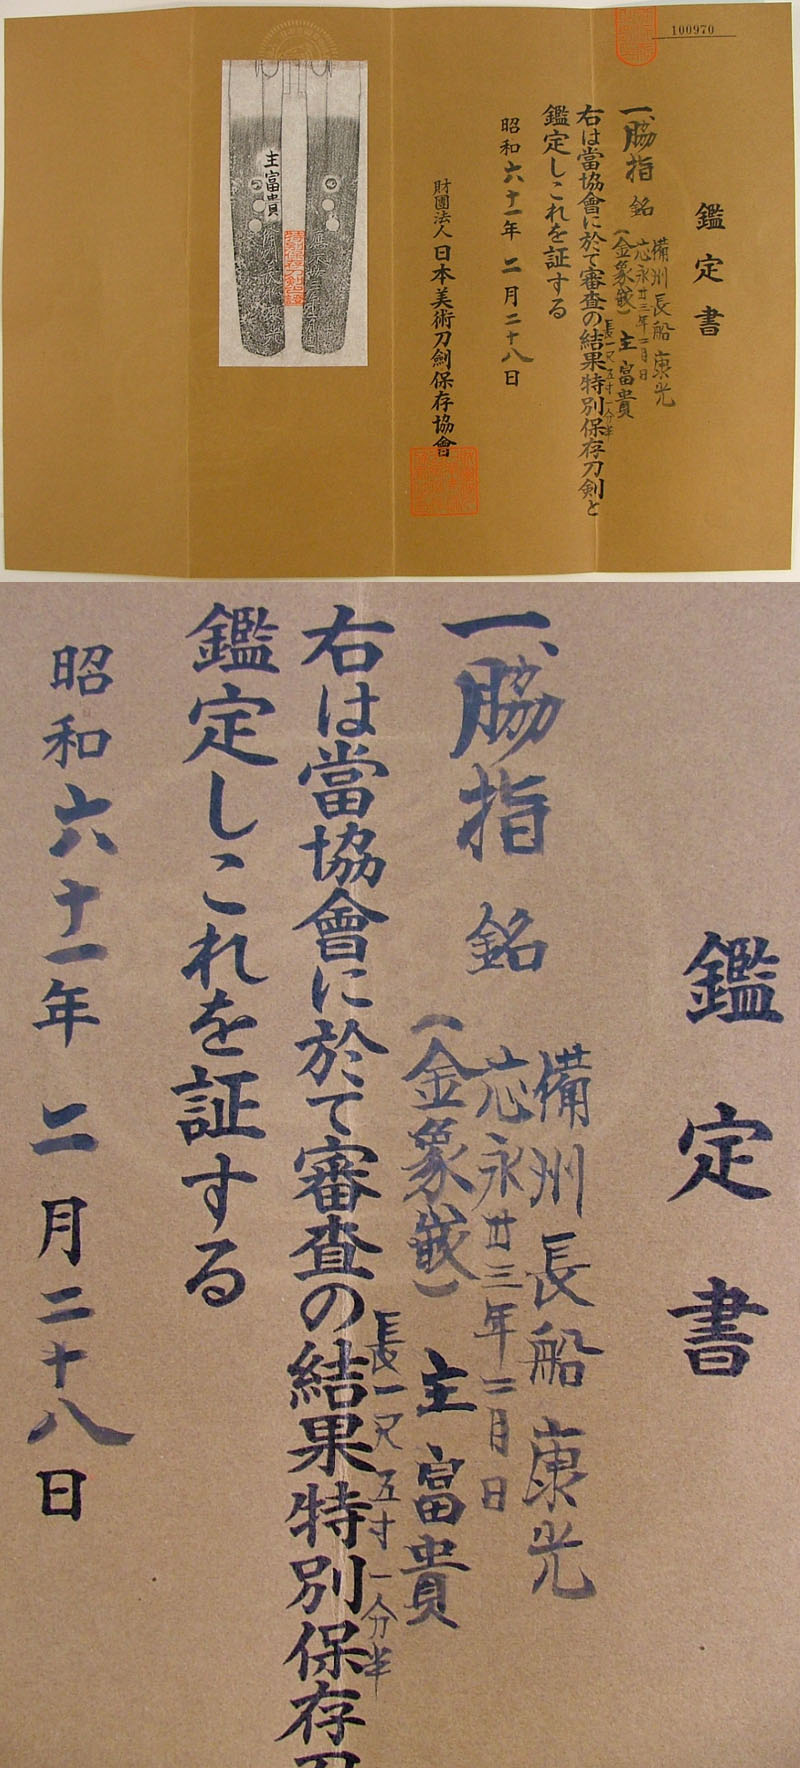 100970
鑑定書
一、脇指 銘 備州長船康光
応永廿三年二月日
(金象嵌) 主富貴
長一尺五寸一分半
右は當協會に於て審査の結果特別保存刀剣と
鑑定しこれを証する
昭和六十一年 二月二十八日
財團法人 日本美術刀劍保存協會
主富貴
鑑定書
一、脇指 銘 備州長船康光
応永廿三年二月日
(金象嵌) 主富貴
長一尺五寸一分半
右は當協會に於て審査の結果特別保存刀
鑑定しこれを証する
昭和六十一年 二月二十八日